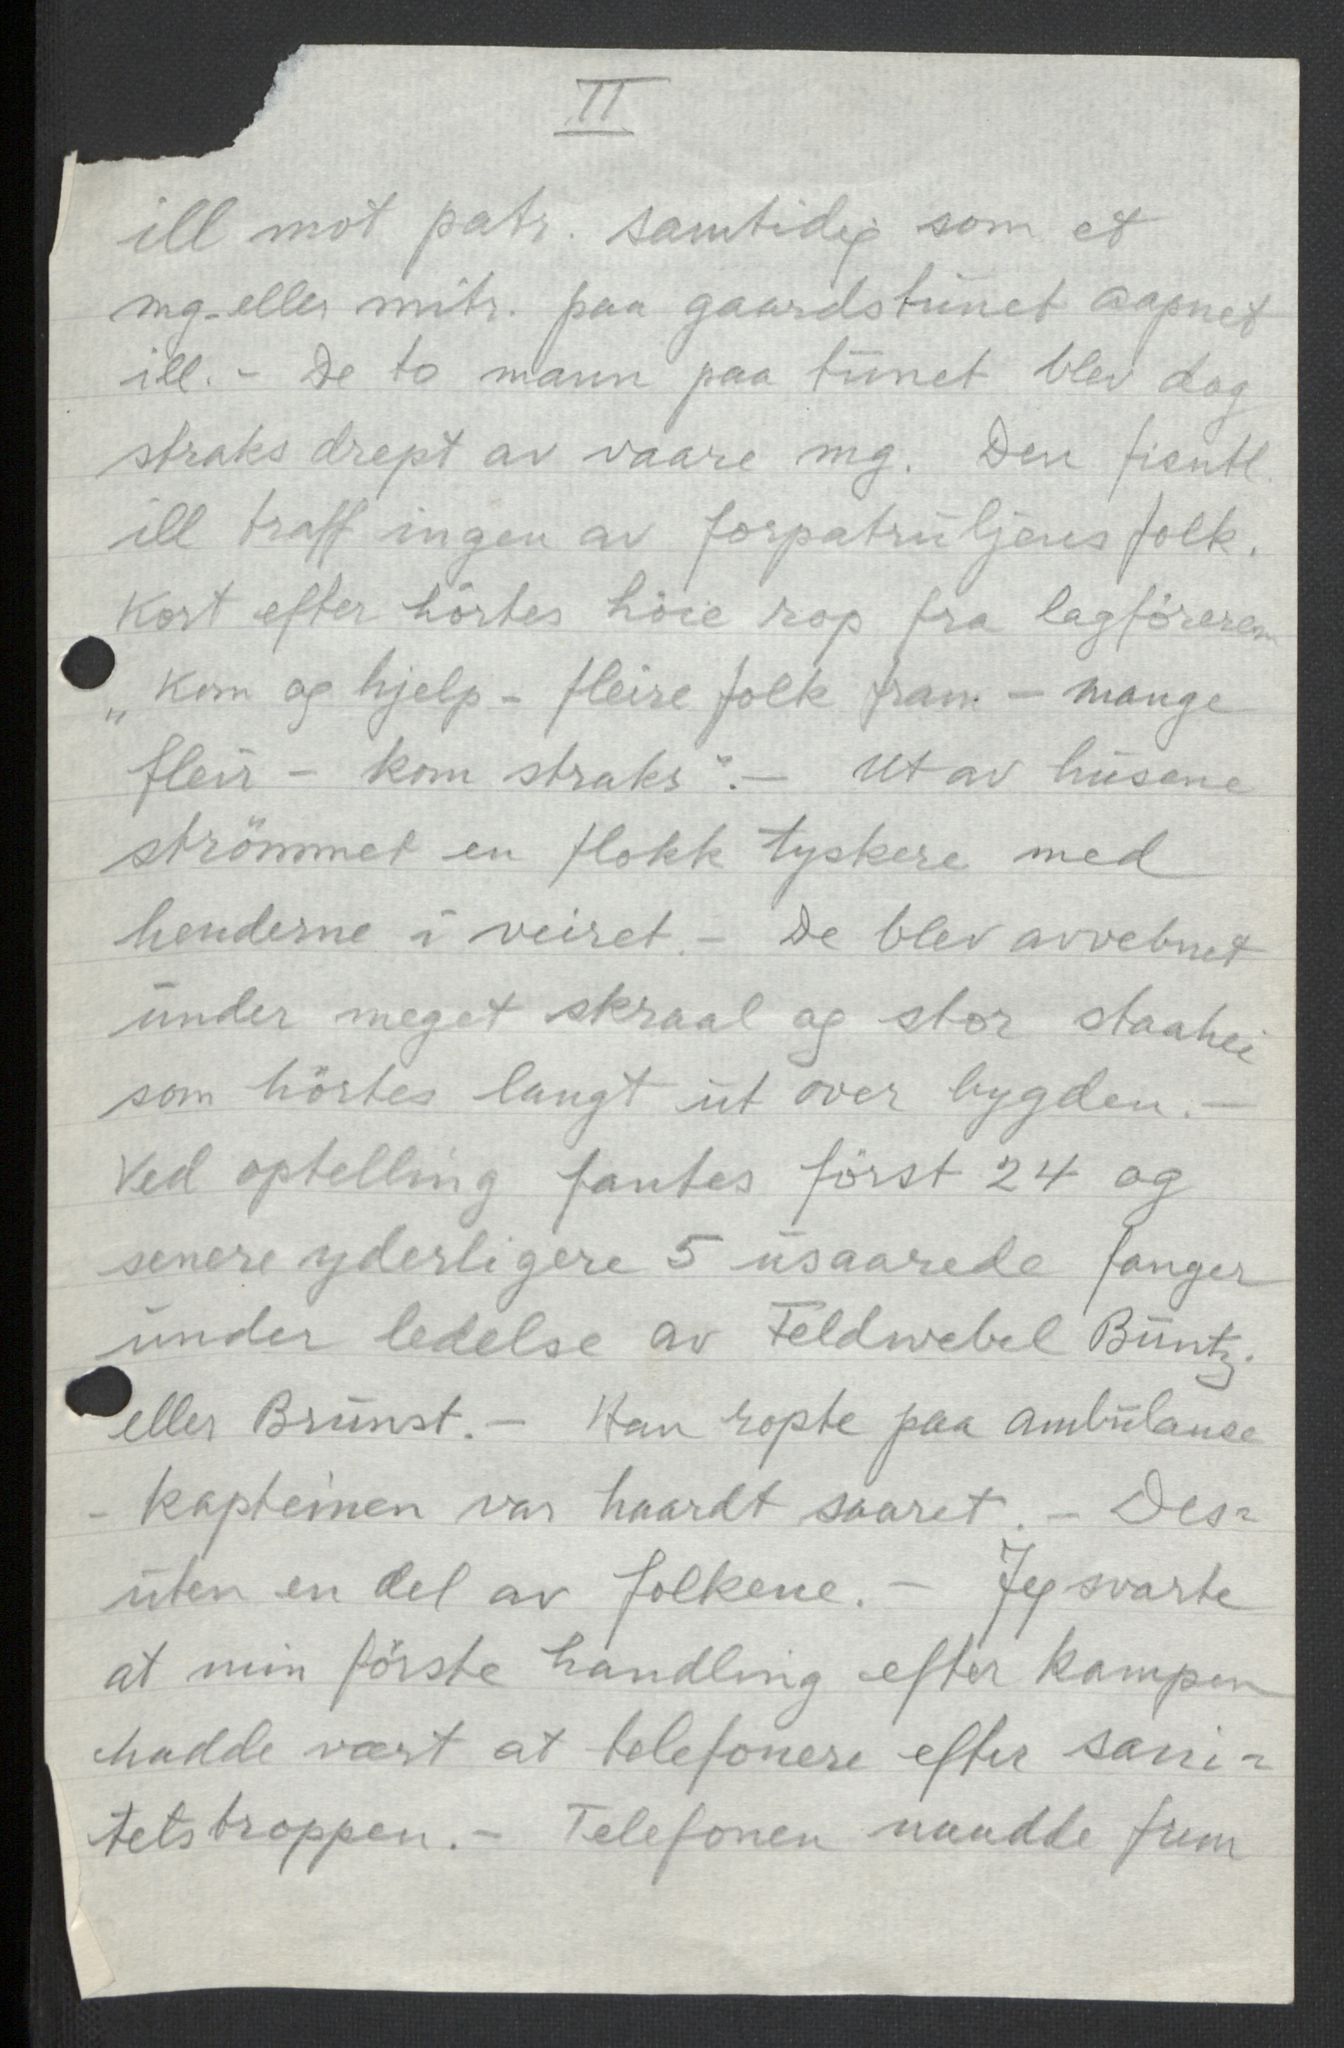 II
ill mot patr. samtidig som et
mg. eller mitr. paa gaardstunet aapnet
ill. - De to mann paa tunet blev dog
straks drept av vaare mg. Den fientl.
ill traff ingen av forpatruljens folk.
Kort efter hörtes höie rop fra lagföreren
„Kom og hjelp - fleire folk fram - mange
fleir - kom straks". - Ut av husene
strömmet en flokk tyskere med
henderne i veiret. - De blev avvebnet
under meget skraal og stor staahei
som hörtes langt ut over bygden. -
Ved optelling fantes först 24 og
senere yderligere 5 usaarede fanger
under ledelse av Feldwebel Buntz.
eller Brunst. - Han ropte paa ambulanse
- kapteinen var haardt saaret. - Des-
uten en del av folkene. - Jeg svarte
at min förste handling efter kampen
hadde vært at telefonere efter sani-
tetstroppen. - Telefonen naadde frem